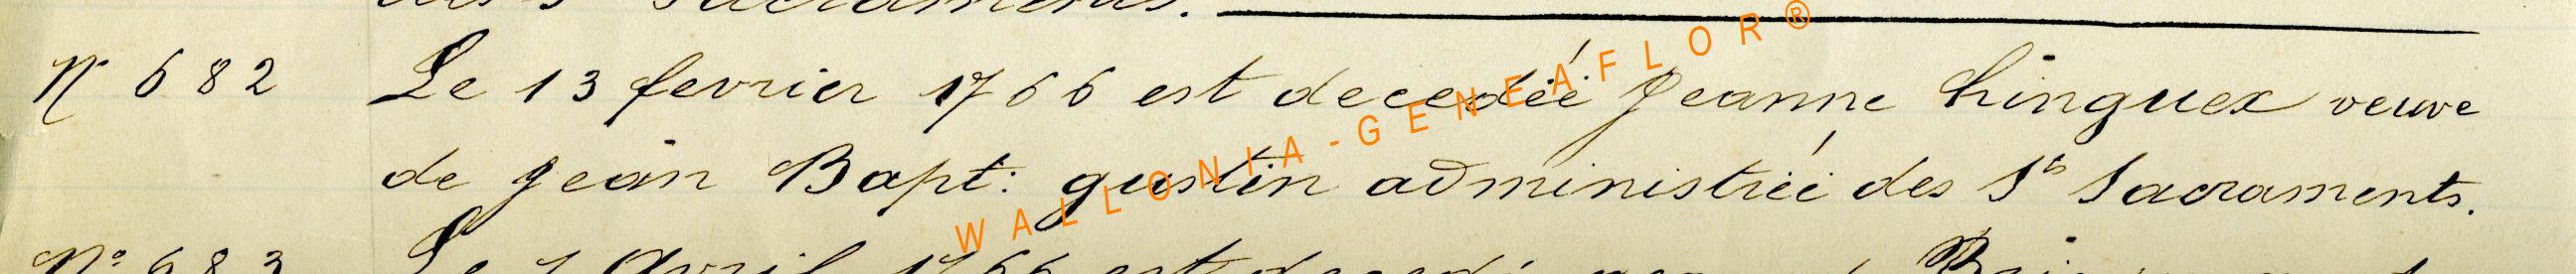 des Sts Sacraments.
N° 682 Le 13 fevrier 1766 est decedéé Jeanne hinguex veuve
de jean Bapt: gustin administréé des Sts Sacraments.
N° 683 Le 1 Avril 1766 est decedé
WALLONIA-GENEAFLOR®